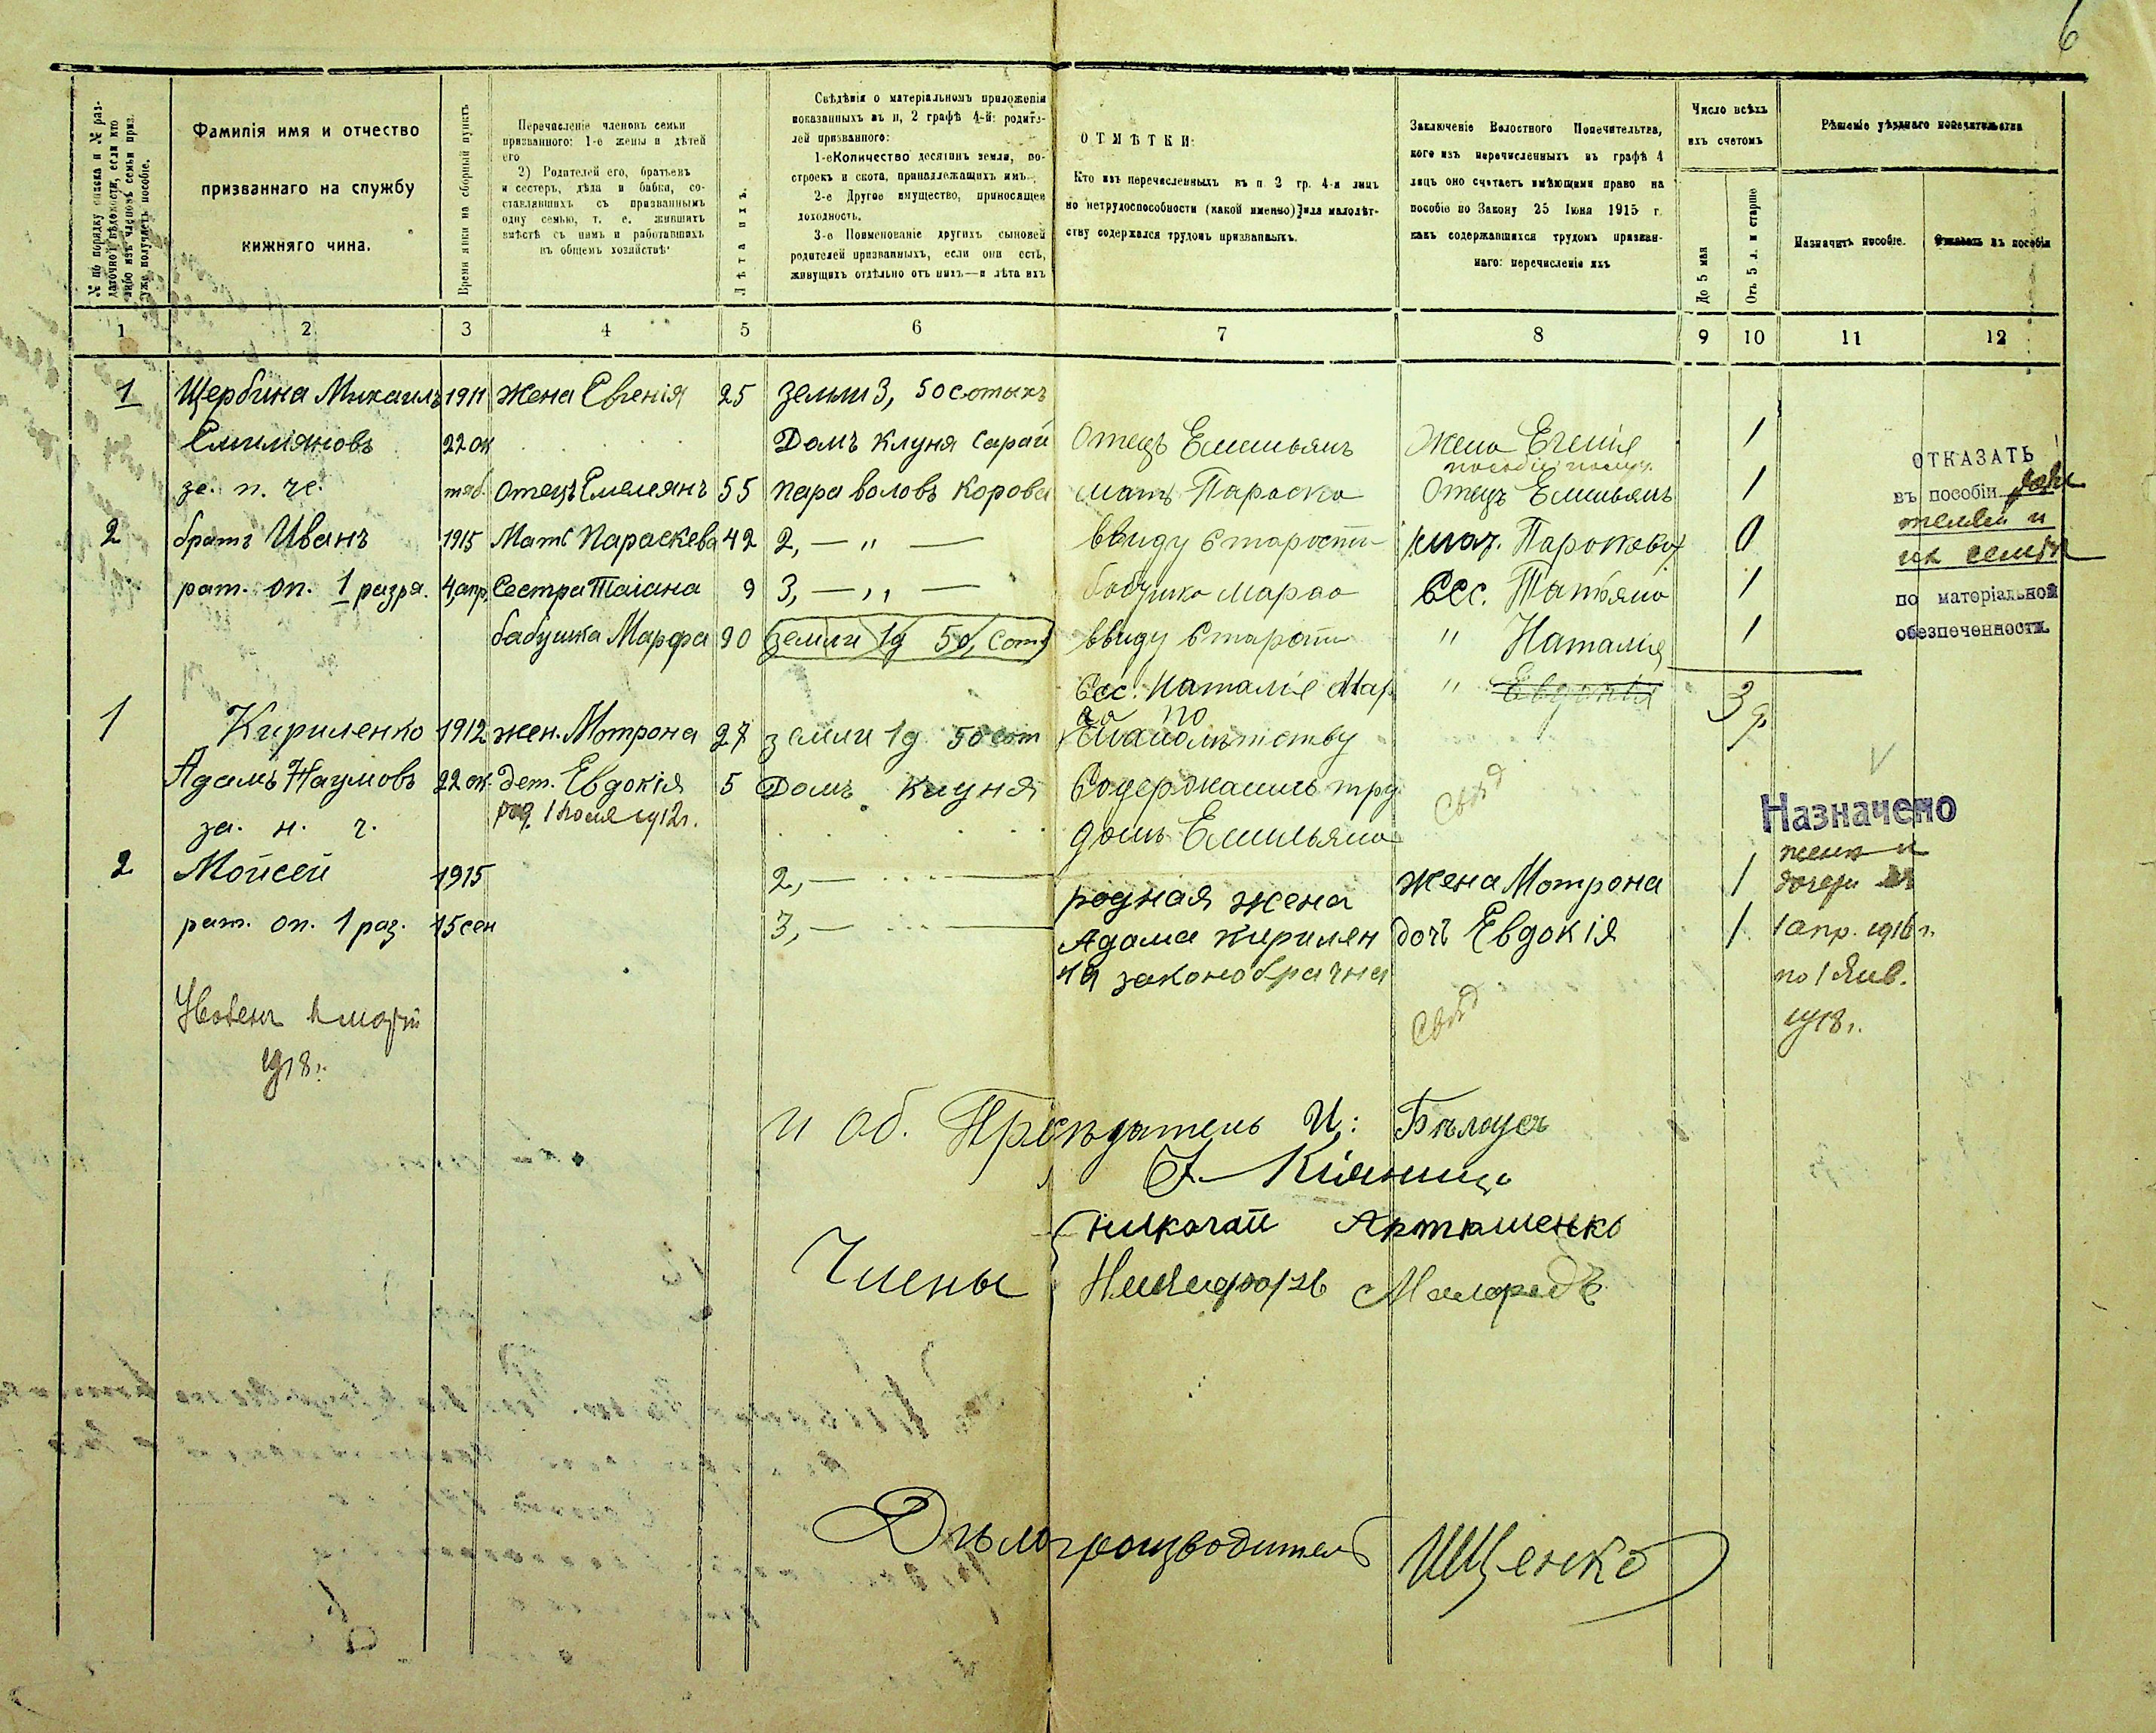 6
№ по порядку списка и № раз-
даточной вѣдомости, если кто
либо изъ членовъ семьи приз.
уже получаетъ пособіе.
Фамилія имя и отчество
призваннаго на службу
нижняго чина.
Время явки на сборный пунктъ
Перечисленіе членовъ семьи
призваннаго: 1-е жены и дѣтей
его
2) Родителей его, братьевъ
и сестеръ, дѣда и бабки, со-
ставлявшихъ съ призваннымъ
одну семью, т. е. жившихъ
вмѣстѣ съ нимъ и работавшихъ
въ общемъ хозяйствѣ
Лѣта ихъ.
Свѣдѣнія о матеріальномъ приложенія
показанныхъ въ п, 2 графѣ 4-й: родите-
лей призваннаго:
1-е Количество десятинъ земли, по-
строекъ и скота, принадлежащихъ имъ.
2-е Другое имущество, приносящее
доходность.
3-е Поименованіе другихъ сыновей
родителей призванныхъ, если они есть,
живущихъ отдѣльно отъ нихъ—и лѣта ихъ
ОТМѢТКИ:
Кто изъ перечисленныхъ въ п 2 гр. 4-й лицъ
по нетрудоспособности (какой именно) или малолѣт-
ству содержался трудомъ призванныхъ.
Заключеніе Волостного Попечительтва,
кого изъ перечисленныхъ въ графѣ 4
лицъ оно считаетъ имѣющими право на
пособіе по Закону 25 Іюня 1915 г.
какъ содержавшихся трудомъ призван-
наго: перечисленіе ихъ
Число всѣхъ
ихъ счетомъ
До 5 мая
Отъ 5 л. и старше
Рѣшеніе уѣзднаго попечительства
Назначить пособіе.
Отказать въ пособіи
1 2 3 4 5 6 7 8 9 10 11 12
1 Щербина Михаилъ 1911 жена Евгенія 25 земли 3, 50 сотыхъ
Емиліяновъ 22 ок Домъ клуня сарай Отецъ Емильянъ Жена Евгенія 1
за. п. ч. тяб. отецъ Емелиянъ 55 пара воловъ корова мать Параска Отецъ Емильянъ 1
2 братъ Иванъ 1915 Мать Параскева 42 2, — " — ввиду старости мат. 0
рат. оп. 1 разря. 4, апр. Сестра Таіана 9 3, — " — бабушка Сес. Татьяна 1
бабушка Марфа 90 земли 1д 50, сот ввиду старости " Наталія 1
ОТКАЗАТЬ
въ пособіи
и
их семьи
по матеріальной
обезпеченности.
Сес. Наталіе " Евдокія 3
1 Кириленко 1912 жен. Мотрона 27 земли 1д 50 сот по малолѣтству
Адамъ Наумовъ 22 ок. дет. Евдокія 5 Домъ клуня Содержались тру
за. н. ч. род. 1 1912 г. домъ Емильяна
Назначено
2 Мойсей 1915 2, — родная жена жена Мотрона 1 жене и дочери
рат. оп. 1 раз. 15 сен 3, — Адама Кирилен дочъ Евдокія 1 1 апр. 1916 г.
ка законобрачна по 1 Янв.
1918 г.
1918 г.
и об. Прѣсѣдатель И: Бѣлоусъ
Кіяница
Члены Николай Артюшенко
Никифоръ
Дѣлопроизводитель